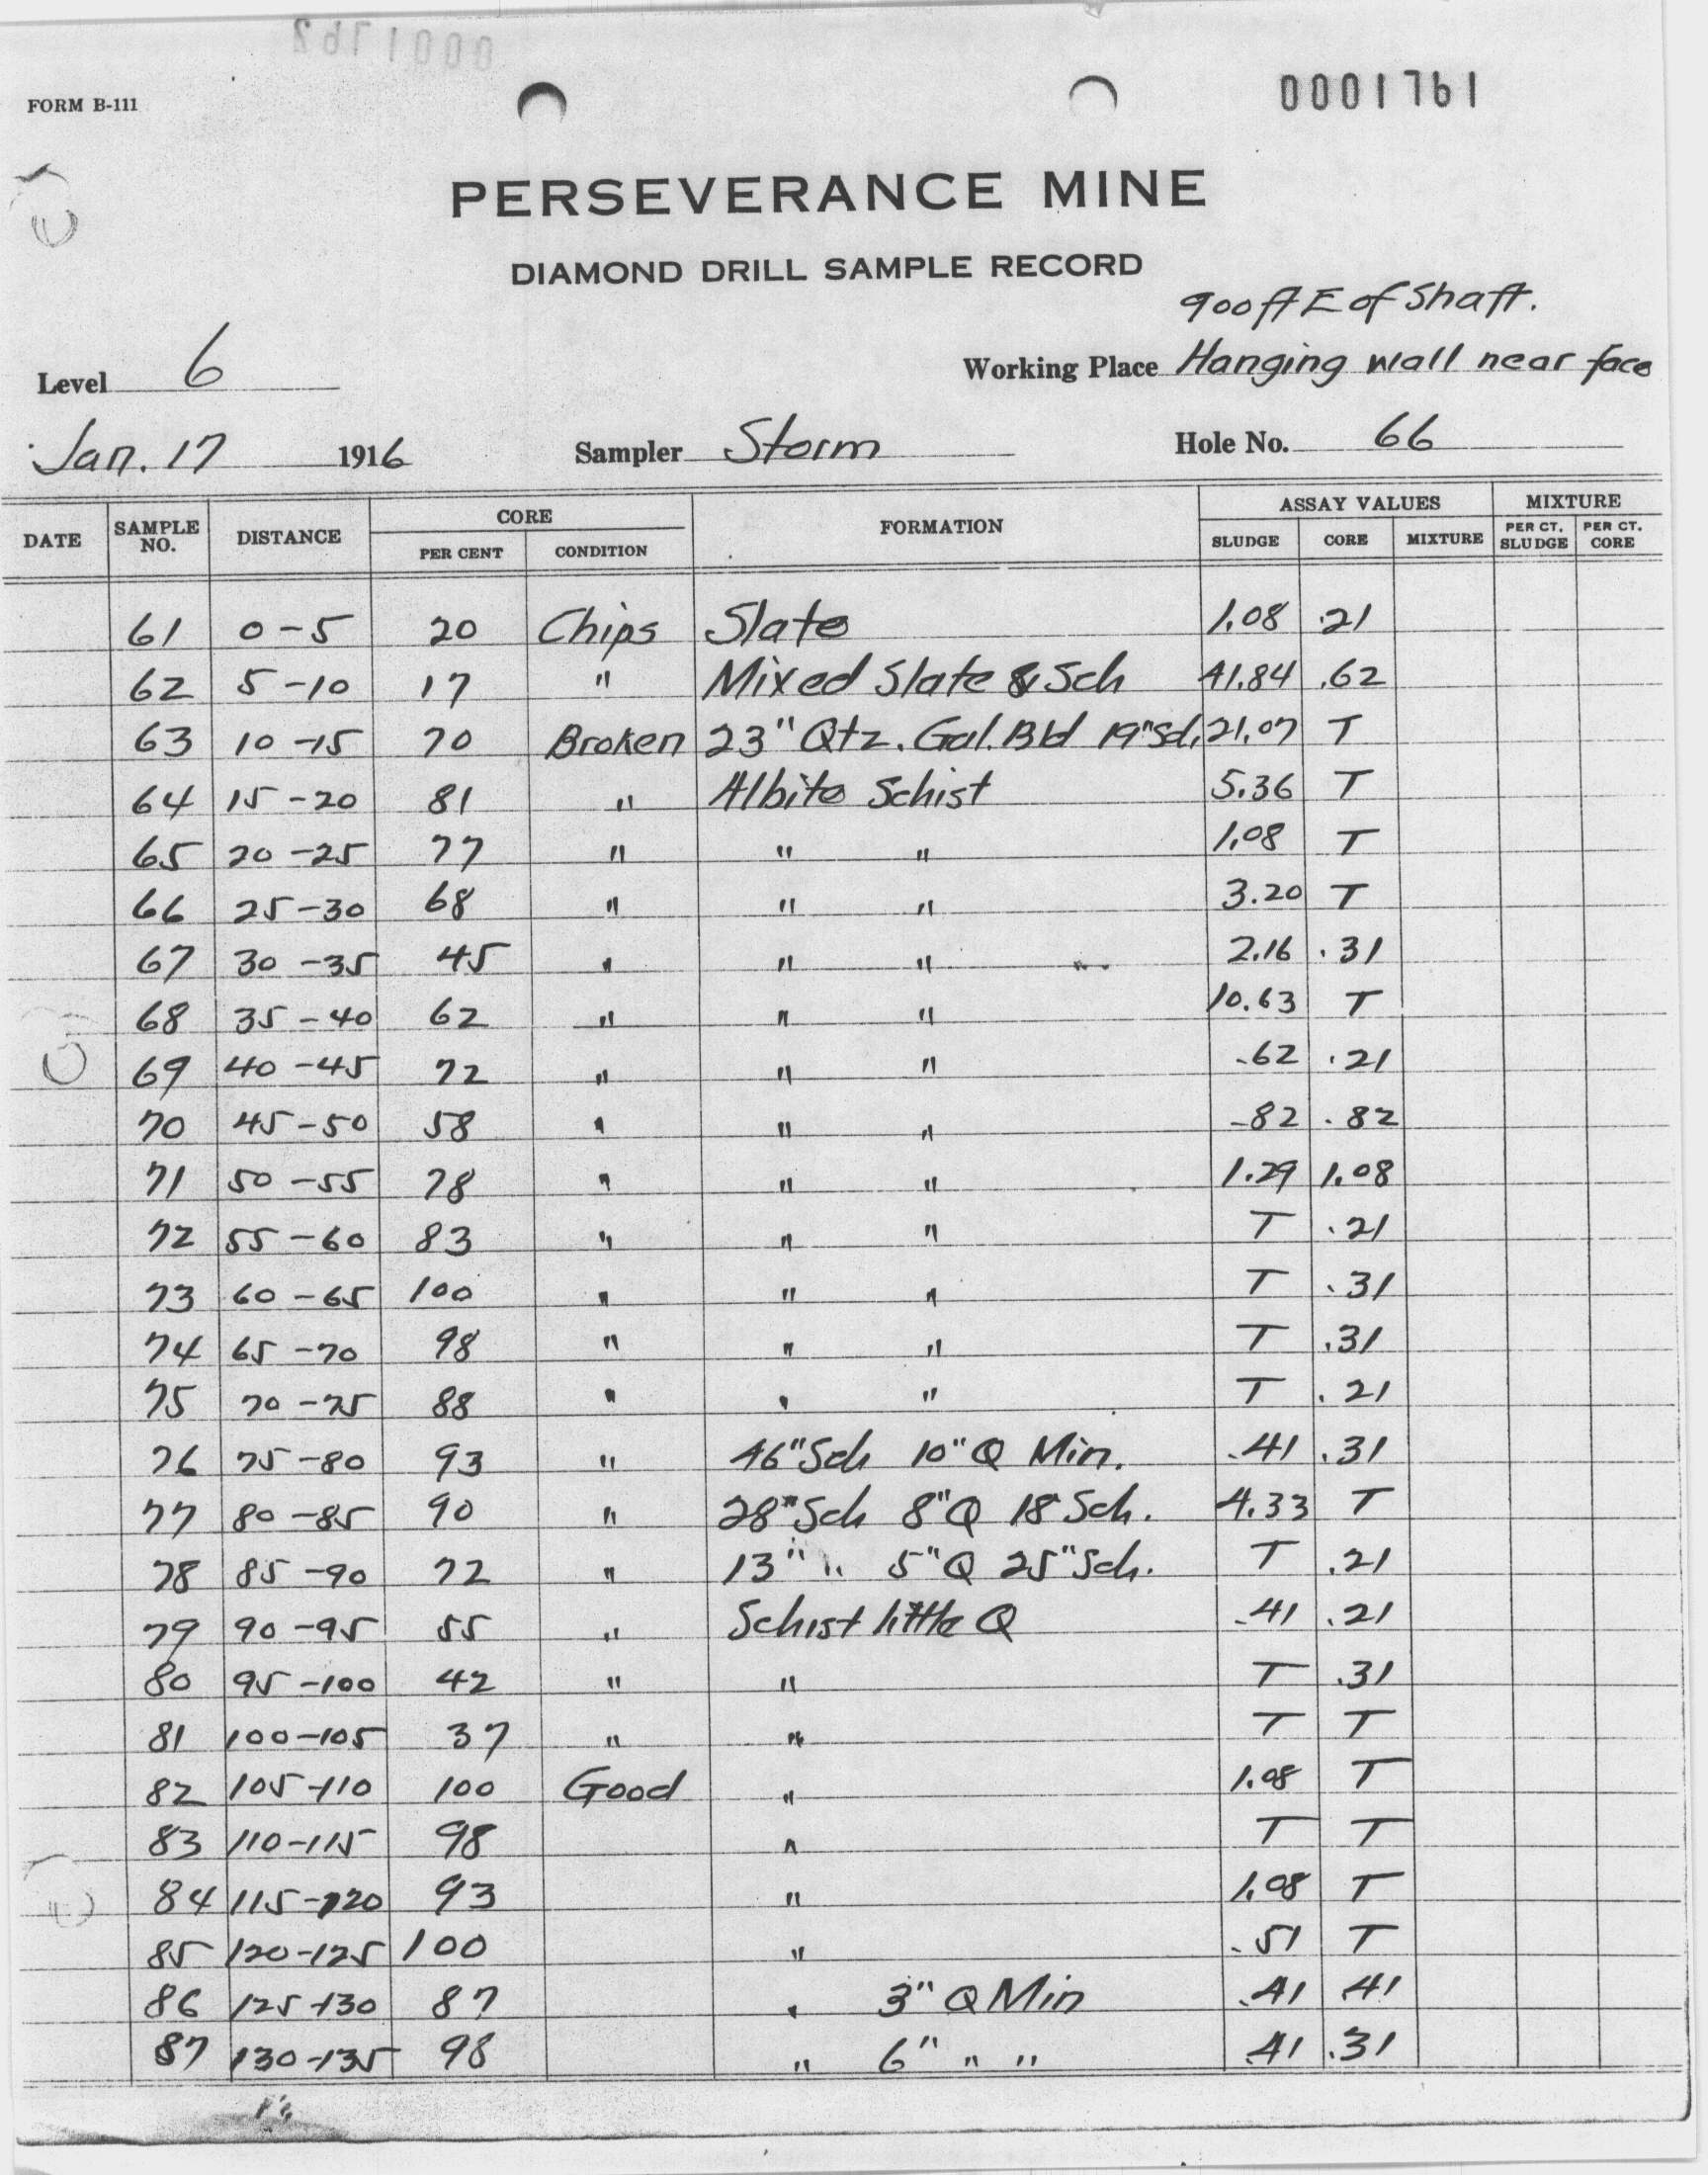 0001762
FORM B-111
0001761
PERSEVERANCE MINE
DIAMOND DRILL SAMPLE RECORD
900 ft E of Shaft.
Level 6 Working Place Hanging wall near face
Jan. 17 1916 Sampler Storm Hole No. 66
DATE SAMPLE NO. DISTANCE CORE PER CENT CONDITION FORMATION ASSAY VALUES SLUDGE CORE MIXTURE MIXTURE PER CT. SLUDGE PER CT. CORE
61 0-5 20 Chips Slate 1.08 .21
62 5-10 17 " Mixed Slate & Sch 41.84 .62
63 10-15 70 Broken 23" Qtz. Gal. Bld 19" Sch 21.07 T
64 15-20 81 " Albite Schist 5.36 T
65 20-25 77 " " " 1.08 T
66 25-30 68 " " " 3.20 T
67 30-35 45 " " " 2.16 .31
68 35-40 62 " " " 10.63 T
69 40-45 72 " " " .62 .21
70 45-50 58 " " " .82 .82
71 50-55 78 " " " 1.29 1.08
72 55-60 83 " " " T .21
73 60-65 100 " " " T .31
74 65-70 98 " " " T .31
75 70-75 88 " " " T .21
76 75-80 93 " 46" Sch 10" Q Min. .41 .31
77 80-85 90 " 28" Sch 8" Q 18 Sch. 4.33 T
78 85-90 72 " 13" " 5" Q 25" Sch. T .21
79 90-95 55 " Schist little Q .41 .21
80 95-100 42 " " T .31
81 100-105 37 " " T T
82 105-110 100 Good " 1.08 T
83 110-115 98 " T T
84 115-120 93 " 1.08 T
85 120-125 100 " .51 T
86 125-130 87 " 3" Q Min .41 .41
87 130-135 98 " 6" " " .41 .31